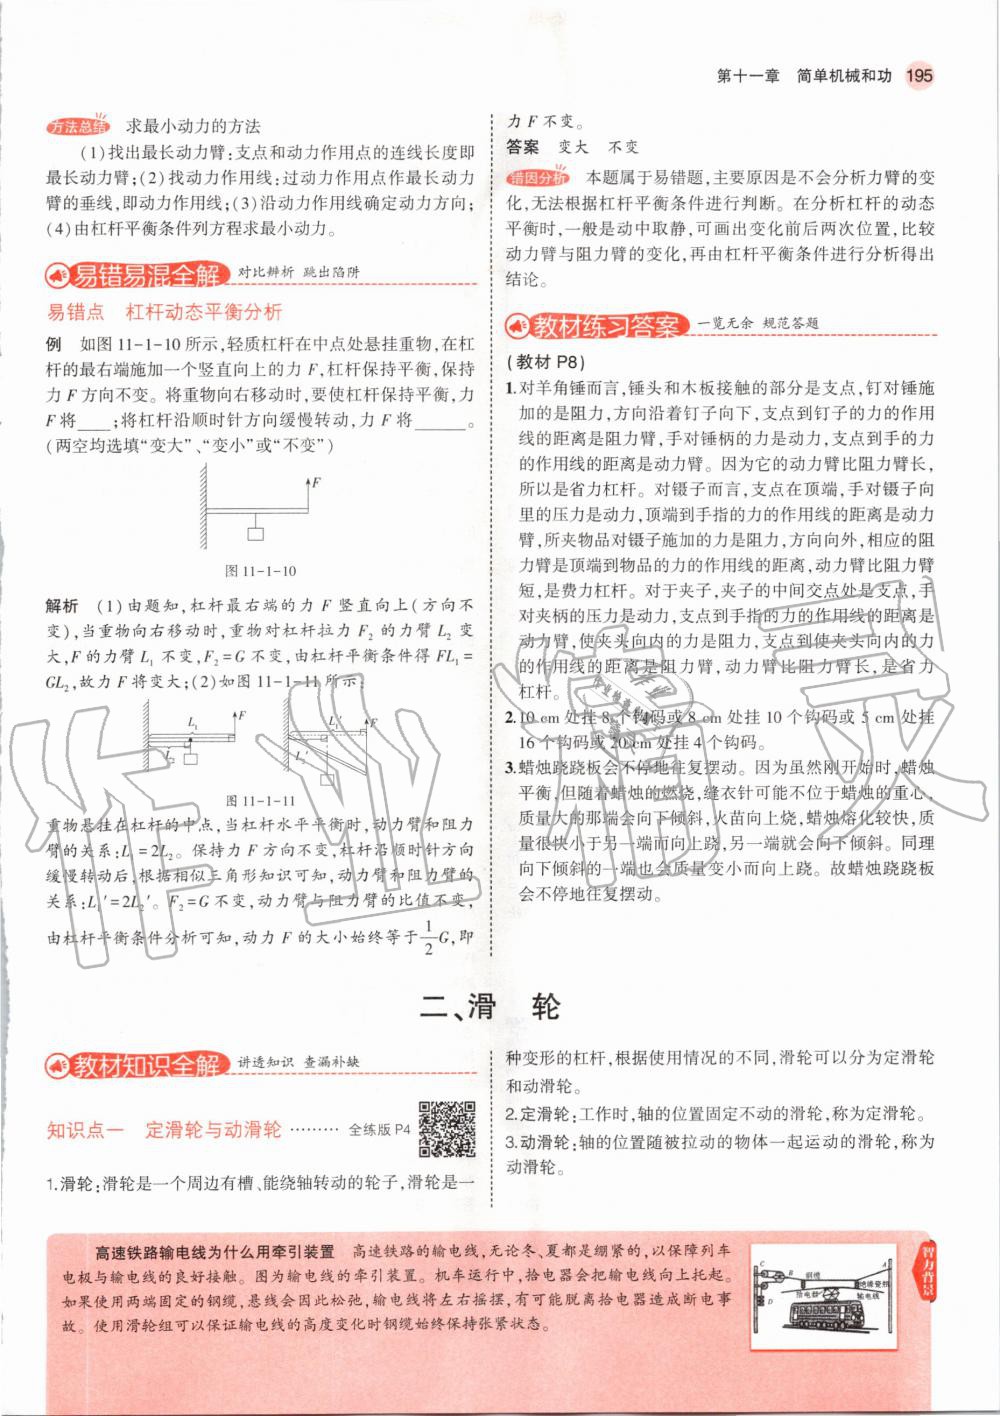 第十一章 简单机械和功 195
方法总结 求最小动力的方法
(1)找出最长动力臂:支点和动力作用点的连线长度即
最长动力臂;(2)找动力作用线:过动力作用点作最长动力
臂的垂线,即动力作用线;(3)沿动力作用线确定动力方向;
(4)由杠杆平衡条件列方程求最小动力。
易错易混全解 对比辨析 跳出陷阱
易错点 杠杆动态平衡分析
例 如图11-1-10所示,轻质杠杆在中点处悬挂重物,在杠
杆的最右端施加一个竖直向上的力F,杠杆保持平衡,保持
力F方向不变。将重物向右移动时,要使杠杆保持平衡,力
F将____;将杠杆沿顺时针方向缓慢转动,力F将______。
(两空均选填“变大”、“变小”或“不变”)
F
图11-1-10
解析 (1)由题知,杠杆最右端的力F竖直向上(方向不
变),当重物向右移动时,重物对杠杆拉力F₂的力臂L₂变
大,F的力臂L₁不变,F₂=G不变,由杠杆平衡条件得FL₁=
GL₂,故力F将变大;(2)如图11-1-11所示:
L₁ F L₁′ F
L₂ L₂′
图11-1-11
重物悬挂在杠杆的中点,当杠杆水平平衡时,动力臂和阻力
臂的关系:L₁=2L₂。保持力F方向不变,杠杆沿顺时针方向
缓慢转动后,根据相似三角形知识可知,动力臂和阻力臂的
关系:L₁′=2L₂′。F₂=G不变,动力臂与阻力臂的比值不变,
由杠杆平衡条件分析可知,动力F的大小始终等于1/2G,即
力F不变。
答案 变大 不变
错因分析 本题属于易错题,主要原因是不会分析力臂的变
化,无法根据杠杆平衡条件进行判断。在分析杠杆的动态
平衡时,一般是动中取静,可画出变化前后两次位置,比较
动力臂与阻力臂的变化,再由杠杆平衡条件进行分析得出
结论。
教材练习答案 一览无余 规范答题
(教材P8)
1.对羊角锤而言,锤头和木板接触的部分是支点,钉对锤施
加的是阻力,方向沿着钉子向下,支点到钉子的力的作用
线的距离是阻力臂,手对锤柄的力是动力,支点到手的力
的作用线的距离是动力臂。因为它的动力臂比阻力臂长,
所以是省力杠杆。对镊子而言,支点在顶端,手对镊子向
里的压力是动力,顶端到手指的力的作用线的距离是动力
臂,所夹物品对镊子施加的力是阻力,方向向外,相应的阻
力臂是顶端到物品的力的作用线的距离,动力臂比阻力臂
短,是费力杠杆。对于夹子,夹子的中间交点处是支点,手
对夹柄的压力是动力,支点到手指的力的作用线的距离是
动力臂,使夹头向内的力是阻力,支点到使夹头向内的力
的作用线的距离是阻力臂,动力臂比阻力臂长,是省力
杠杆。
2.10 cm处挂8个钩码或8 cm处挂10个钩码或5 cm处挂
16个钩码或20 cm处挂4个钩码。
3.蜡烛跷跷板会不停地往复摆动。因为虽然刚开始时,蜡烛
平衡,但随着蜡烛的燃烧,缝衣针可能不位于蜡烛的重心,
质量大的那端会向下倾斜,火苗向上烧,蜡烛熔化较快,质
量很快小于另一端而向上跷,另一端就会向下倾斜。同理
向下倾斜的一端也会质量变小而向上跷。故蜡烛跷跷板
会不停地往复摆动。
作业精灵
二、滑 轮
教材知识全解 讲透知识 查漏补缺
知识点一 定滑轮与动滑轮 ……… 全练版P4
1.滑轮:滑轮是一个周边有槽、能绕轴转动的轮子,滑轮是一
种变形的杠杆,根据使用情况的不同,滑轮可以分为定滑轮
和动滑轮。
2.定滑轮:工作时,轴的位置固定不动的滑轮,称为定滑轮。
3.动滑轮:轴的位置随被拉动的物体一起运动的滑轮,称为
动滑轮。
高速铁路输电线为什么用牵引装置 高速铁路的输电线,无论冬、夏都是绷紧的,以保障列车
电极与输电线的良好接触。图为输电线的牵引装置。机车运行中,拾电器会把输电线向上托起。
如果使用两端固定的钢缆,悬线会因此松弛,输电线将左右摇摆,有可能脱离拾电器造成断电事
故。使用滑轮组可以保证输电线的高度变化时钢缆始终保持张紧状态。
C B 钢缆 A
拾电器 绝缘瓷瓶
D 输电线
智力背景